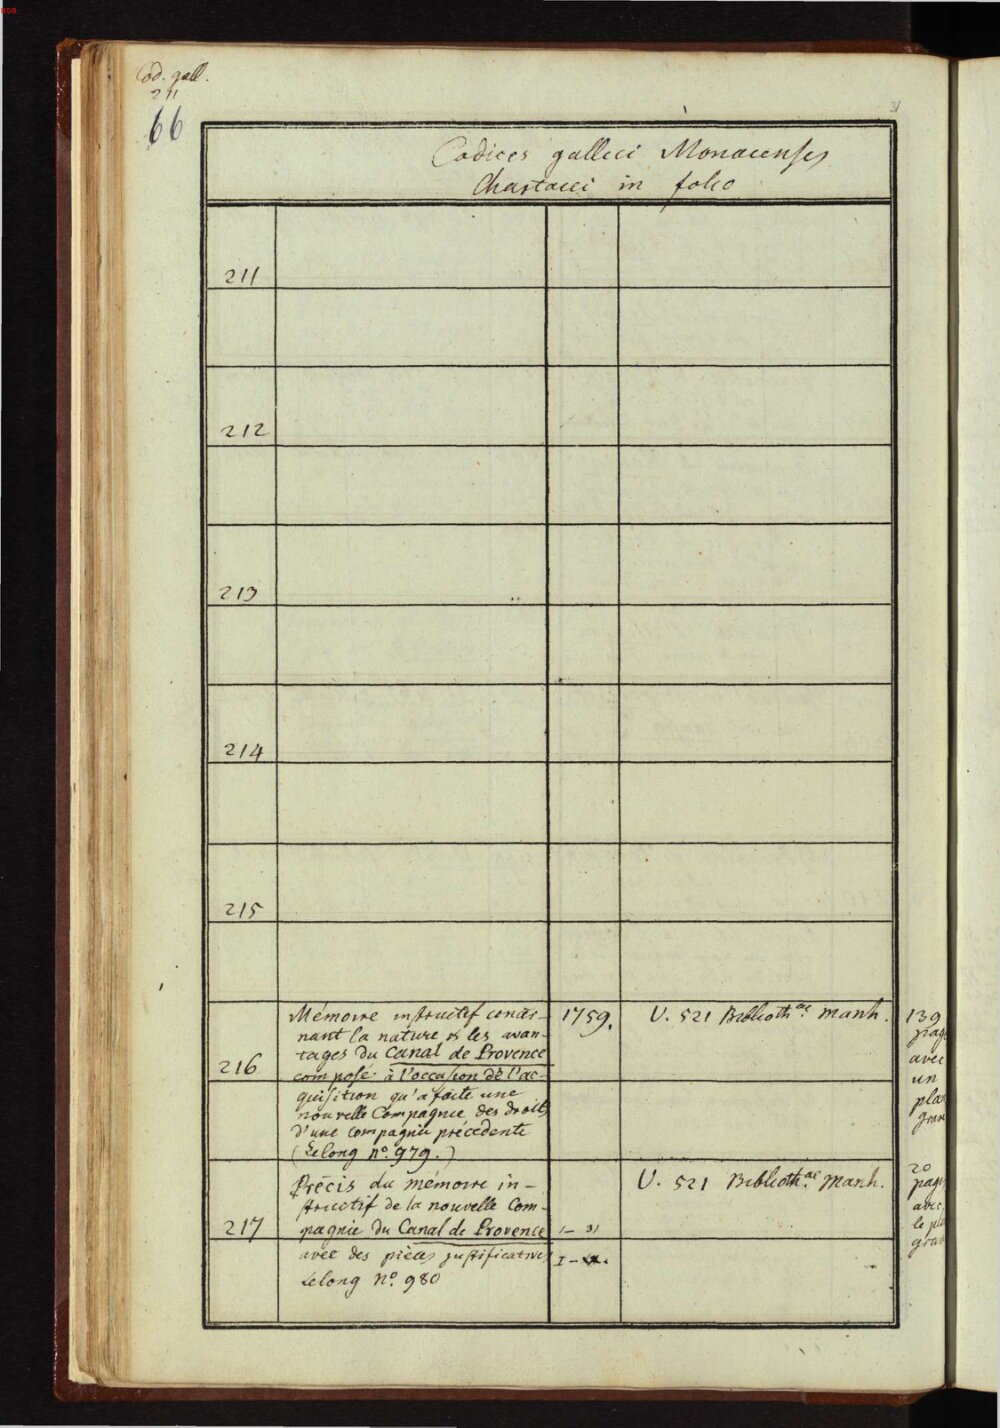 Cod. gall.
211
66
31
Codices gallici Monacenses
Chartacei in folio
211
212
213
214
215
216
Mémoire instructif concer-
nant la nature & les avan-
tages du Canal de Provence
composé à l'occasion de l'ac-
quisition qu'a faite une
nouvelle Compagnie des droits
d'une compagnie précedente
(Lelong nº. 979.)
1759.
U. 521 Biblioth.ae Manh.
139
pag
avec
un
plan
grav
217
Précis du mémoire in-
structif de la nouvelle Com-
pagnie du Canal de Provence
avec des pièces justificatives
Lelong nº. 980
1- 31
I-
U. 521 Biblioth.ae Manh.
20
pag
avec
le plan
grav